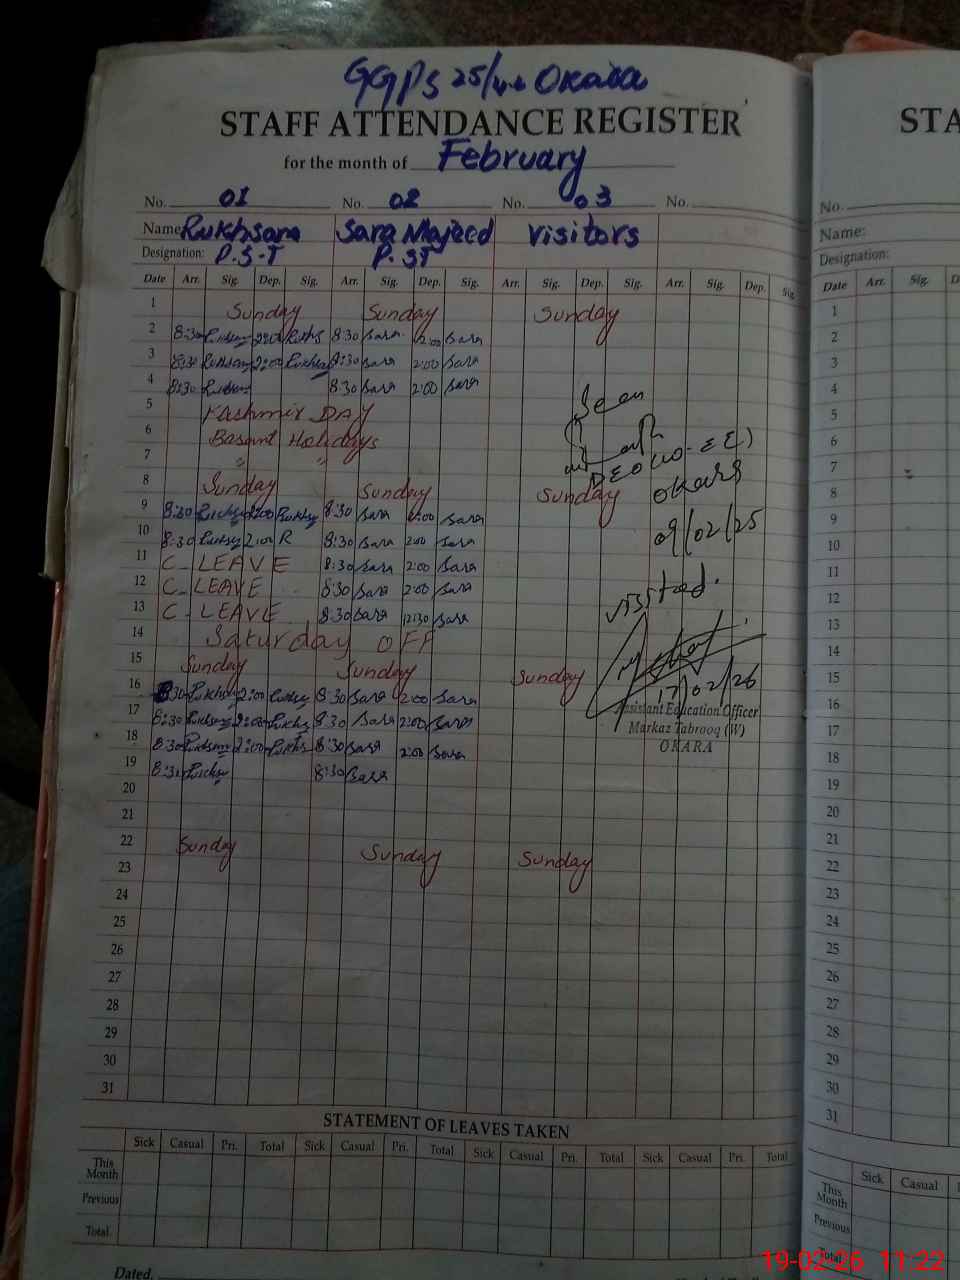 GGPS 25/4-L Okara
STAFF ATTENDANCE REGISTER
for the month of February
No. 01 No. 02 No. 03 No.
Name: Rukhsana Sara Majeed Visitors
Designation: P.S.T P.ST
Date Arr. Sig. Dep. Sig. Arr. Sig. Dep. Sig. Arr. Sig. Dep. Sig. Arr. Sig. Dep. Sig.
1 Sunday Sunday Sunday
2 8:30 2:00 8:30 Sara 2:00 Sara
3 8:30 2:00 8:30 Sara 2:00 Sara
4 8:30 8:30 Sara 2:00 Sara
5 Kashmir DAY Seen
6 Basant Holidays DEO (W-EE)
7 " " OKARA
8 Sunday Sunday Sunday
9 8:30 2:00 8:30 Sara 2:00 Sara 09/02/25
10 8:30 2:00 R 8:30 Sara 2:00 Sara
11 C-LEAVE 8:30 Sara 2:00 Sara
12 C-LEAVE 8:30 Sara 2:00 Sara
13 C-LEAVE 8:30 Sara 12:30 Sara visited.
14 Saturday OFF
15 Sunday Sunday Sunday
16 8:30 2:00 8:30 Sara 2:00 Sara 17/02/26
17 8:30 2:00 8:30 Sara 2:00 Sara
18 8:30 2:00 8:30 Sara 2:00 Sara
19 8:30 8:30 Sara
Assistant Education Officer
Markaz Tabrooq (W)
OKARA
20
21
22 Sunday Sunday Sunday
23
24
25
26
27
28
29
30
31
STATEMENT OF LEAVES TAKEN
Sick Casual Pri. Total Sick Casual Pri. Total Sick Casual Pri. Total Sick Casual Pri. Total
This Month
Previous
Total
Dated.
STA
No.
Name:
Designation:
Date Arr. Sig. Dep.
1
2
3
4
5
6
7
8
9
10
11
12
13
14
15
16
17
18
19
20
21
22
23
24
25
26
27
28
29
30
31
Sick Casual
This Month
Previous
Total
19-02-26 11:22